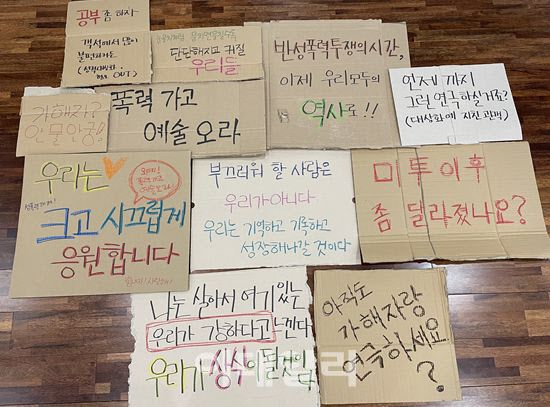 공부 좀 하자
객석에서 많이
불편하거든
OUT)
단단해지고 커질
우리들
반성폭력투쟁의시간,
이제 우리모두의
역사로!!
언제까지
그런 연극하실거죠?
(대상화에 지친 관객)
가해자?
안물안궁!
폭력 가고
예술 오라
우리는
크고 시끄럽게
응원합니다
부끄러워 할 사람은
우리가아니다
우리는 기억하고 기록하고
성장해나갈 것이다
미투 이후
좀 달라졌나요?
나는 살아서 여기 있는
우리가 강하다고 느낀다
우리가 상식이 될것이다
아직도
가해자랑
연극하세요
?
이데일리